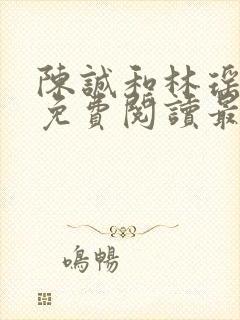 陳誠和林瑤
免費閱讀最
鳴暢